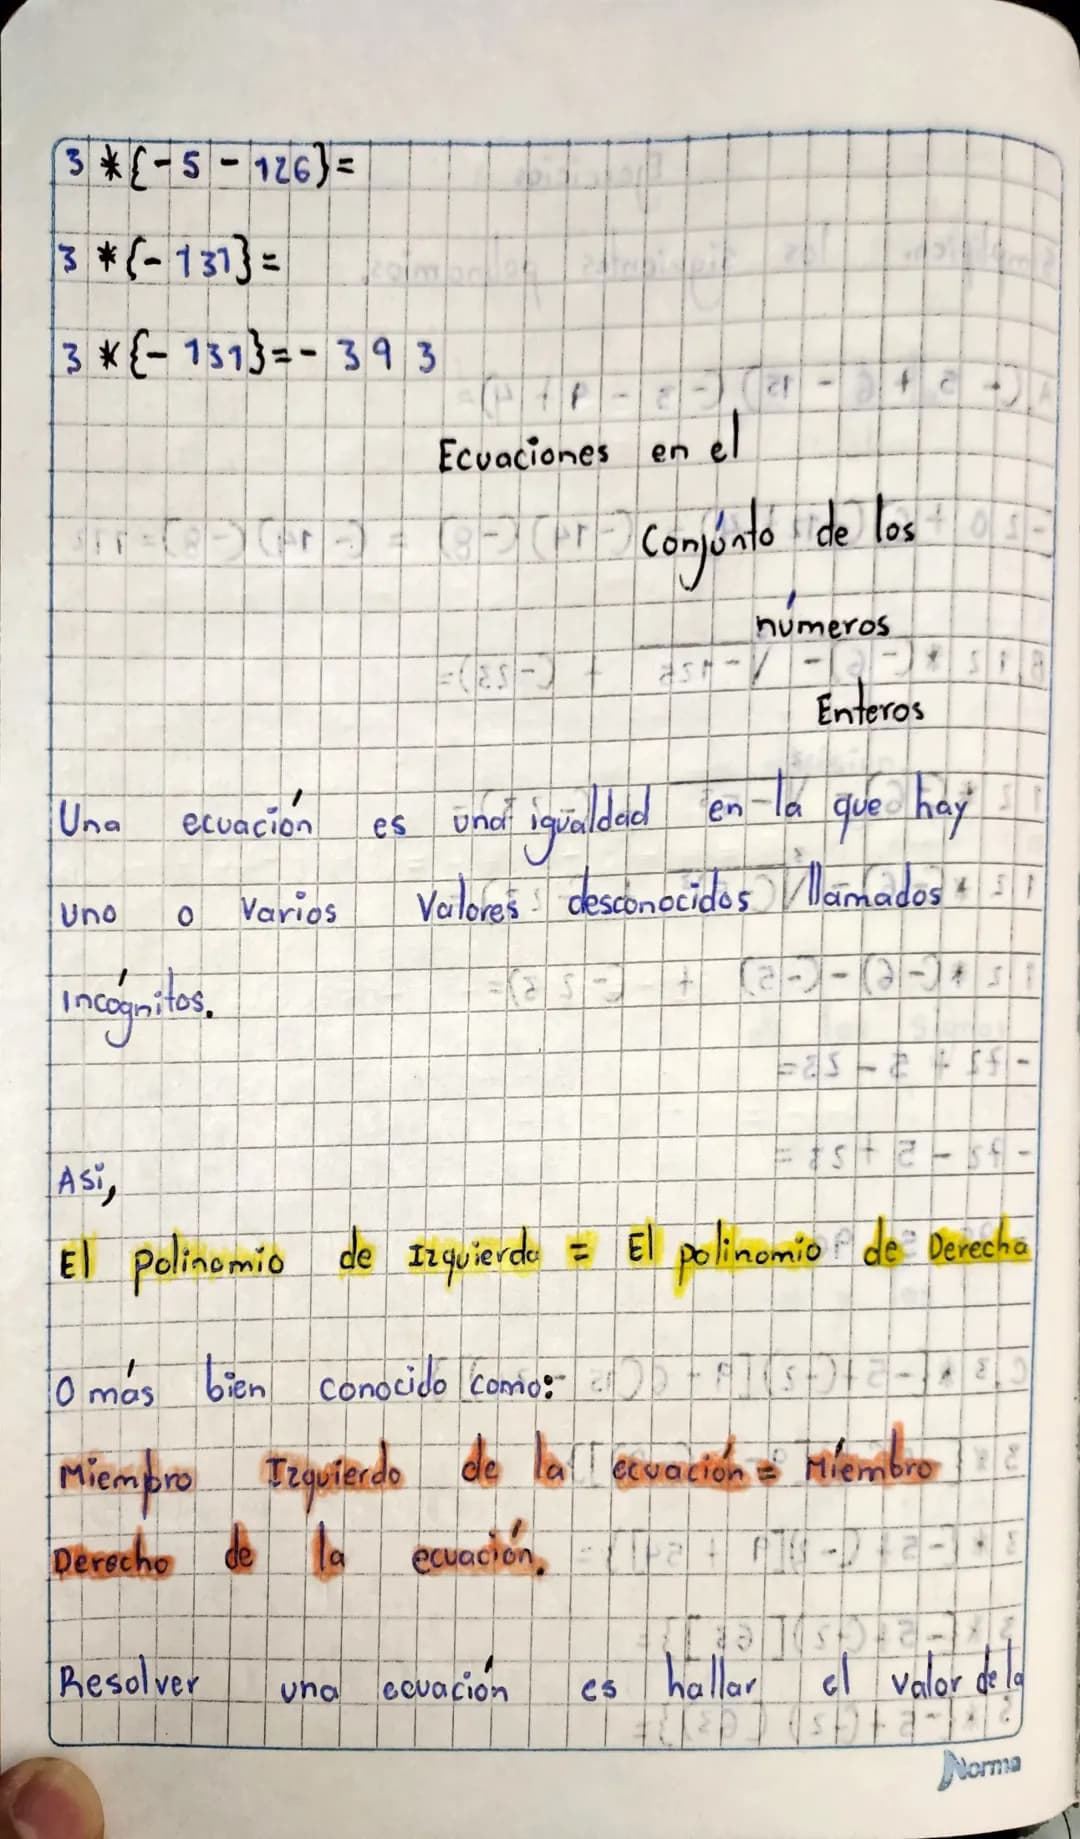 3 * {- 5 - 126} =
3 * {- 131} =
3 * {- 131} = - 393
Ecuaciones en el
Conjúnto de los
números
Enteros
Una ecuación es una igualdad en la que hay
uno o varios Valores desconocidos llamados
incógnitas.
Asi,
El polinomio de Izquierda = El polinomio de Derecha
O más bien conocido como:
Miembro Izquierdo de la ecuación = Miembro
Derecho de la ecuación.
Resolver una ecuación es hallar el valor de la
Norma